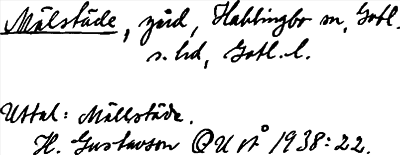 Mälstäde, gård, Hablingbo sn, Gotl.
s. hd, Gotl. l.
Uttal: Mällstäde.
H. Gustavson OU nr 1938:22.